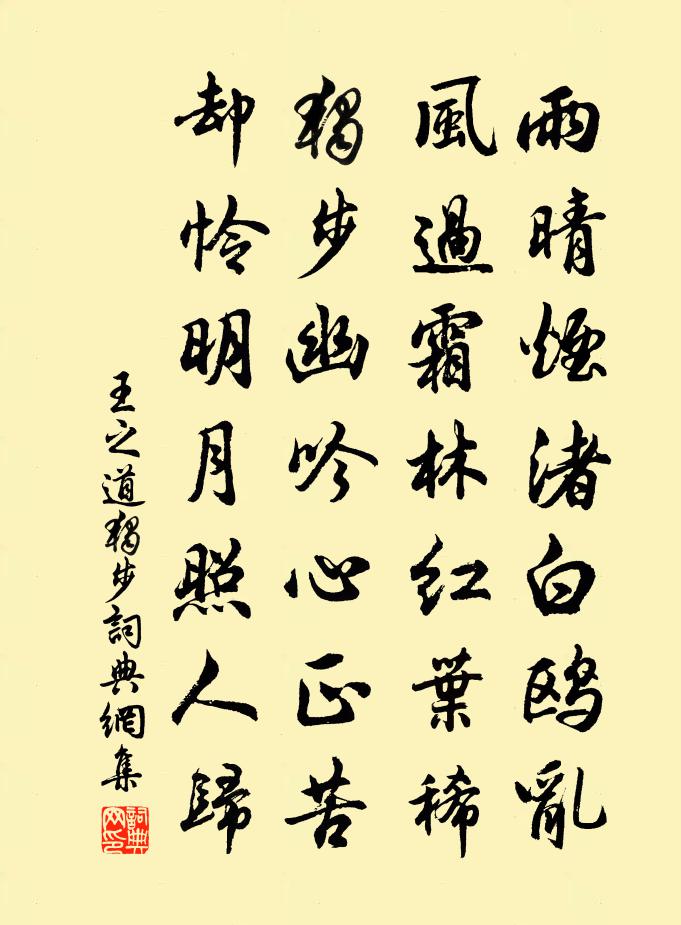 雨晴煙渚白鸥亂
風過霜林紅葉稀
獨步幽吟心正苦
却怜明月照人歸
王之道獨步詞典網集
詞典网印